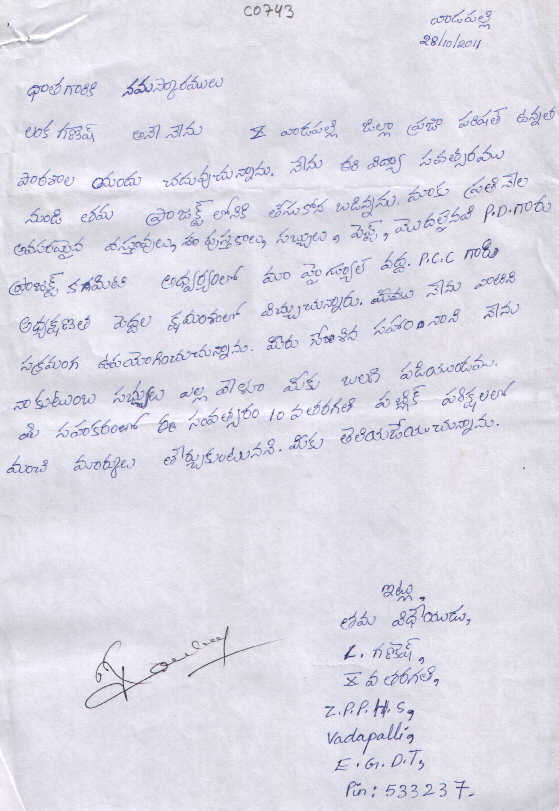 C0743
వాడపల్లి
28/10/2011
ధాతగారికి నమస్కారములు
లంక గణేష్ అనే నేను X వాడపల్లి జిల్లా ప్రజా పరిషత్ ఉన్నత
పాఠశాల యందు చదువుచున్నాను. నేను ఈ విద్యా సవత్సరము
నుండి తమ ప్రాజెక్ట్ లోనికి తీసుకోన బడిన్నను. మాకు ప్రతి నెల
అవసరమైన వస్తువులు, పుస్తకాలు, సబ్బులు, పేస్ట్, మొదలైనవి P.D.గారు
ప్రాజెక్ట్ కమిటి ఆధ్వర్యంలో మా హైస్కూల్ వద్ద. P.C.C గారి
అధ్యక్షతన పెద్దల సమక్షంలో యిచ్చుచున్నారు. నేను వాటిని
సక్రమంగ ఉపయోగించుచున్నాను. మీరు చేసిన నేను
నా కుటుంబ సభ్యులు ఎల్ల వేళలా మీకు పడియుందుము.
మీ సహకారంలో ఈ సంవత్సరం 10 వ తరగతి పబ్లిక్ పరీక్షలలో
మంచి మార్కులు తెచ్చుకుంటునని. మీకు తెలియజేయుచున్నాను.
ఇట్లు,
తమ విధేయుడు,
L. గణేష్,
X వ తరగతి,
Z.P.P.H.S,
Vadapalli,
E.G.D.T,
Pin: 533237.